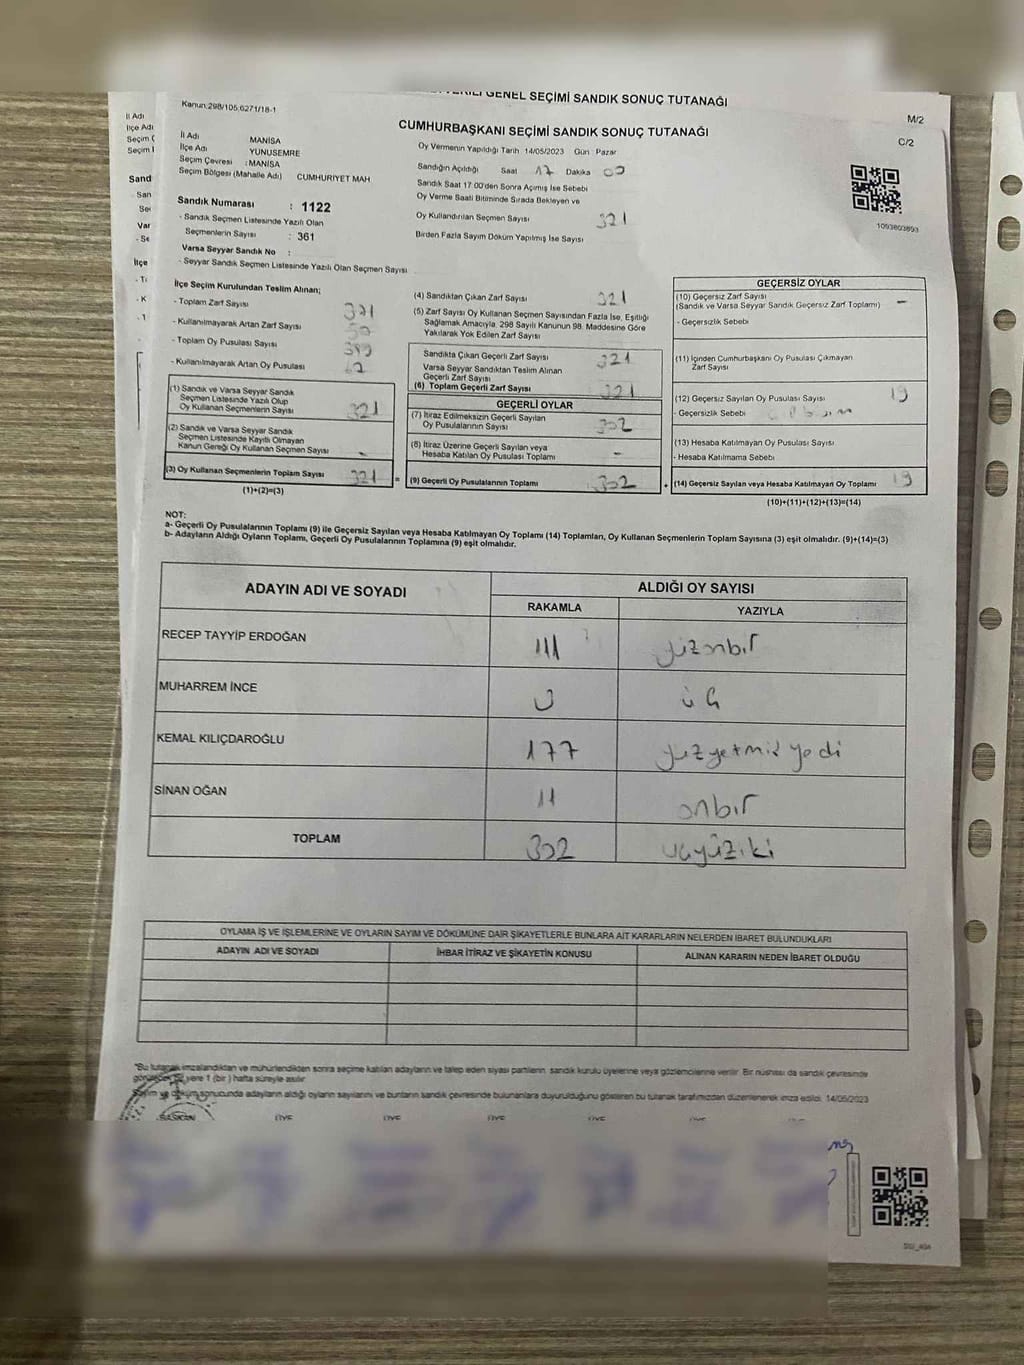 GENEL SEÇİMİ SANDIK SONUÇ TUTANAĞI
M/2
Kanun:298/105,6271/18-1
CUMHURBAŞKANI SEÇİMİ SANDIK SONUÇ TUTANAĞI
C/2
İl Adı MANİSA
İlçe Adı YUNUSEMRE
Seçim Çevresi : MANİSA
Seçim Bölgesi (Mahalle Adı) CUMHURIYET MAH
Sandık Numarası : 1122
- Sandık Seçmen Listesinde Yazılı Olan
Seçmenlerin Sayısı : 361
Varsa Seyyar Sandık No :
- Seyyar Sandık Seçmen Listesinde Yazılı Olan Seçmen Sayısı
Oy Vermenin Yapıldığı Tarih 14/05/2023 Gün : Pazar
Sandığın Açıldığı Saat 17 Dakika 00
Sandık Saat 17:00'den Sonra Açımış İse Sebebi
Oy Verme Saati Bitiminde Sırada Bekleyen ve
Oy Kullandırılan Seçmen Sayısı 321
Birden Fazla Sayım Döküm Yapılmış İse Sayısı
1093603693
İlçe Seçim Kurulundan Teslim Alınan;
- Toplam Zarf Sayısı
- Kullanılmayarak Artan Zarf Sayısı
- Toplam Oy Pusulası Sayısı
- Kullanılmayarak Artan Oy Pusulası
(1) Sandık ve Varsa Seyyar Sandık
Seçmen Listesinde Yazılı Olup
Oy Kullanan Seçmenlerin Sayısı 321
(2) Sandık ve Varsa Seyyar Sandık
Seçmen Listesinde Kayıtlı Olmayan
Kanun Gereği Oy Kullanan Seçmen Sayısı -
(3) Oy Kullanan Seçmenlerin Toplam Sayısı 321 =
(1)+(2)=(3)
(4) Sandıktan Çıkan Zarf Sayısı 321
(5) Zarf Sayısı Oy Kullanan Seçmen Sayısından Fazla İse, Eşitliği
Sağlamak Amacıyla, 298 Sayılı Kanunun 98. Maddesine Göre
Yakılarak Yok Edilen Zarf Sayısı
Sandıkta Çıkan Geçerli Zarf Sayısı 321
Varsa Seyyar Sandıktan Teslim Alınan
Geçerli Zarf Sayısı
(6) Toplam Geçerli Zarf Sayısı 321
GEÇERLİ OYLAR
(7) İtiraz Edilmeksizin Geçerli Sayılan
Oy Pusulalarının Sayısı 302
(8) İtiraz Üzerine Geçerli Sayılan veya
Hesaba Katılan Oy Pusulası Toplamı -
(9) Geçerli Oy Pusulalarının Toplamı 302 +
GEÇERSİZ OYLAR
(10) Geçersiz Zarf Sayısı -
(Sandık ve Varsa Seyyar Sandık Geçersiz Zarf Toplamı)
- Geçersizlik Sebebi
(11) İçinden Cumhurbaşkanı Oy Pusulası Çıkmayan
Zarf Sayısı
(12) Geçersiz Sayılan Oy Pusulası Sayısı 19
- Geçersizlik Sebebi
(13) Hesaba Katılmayan Oy Pusulası Sayısı
- Hesaba Katılmama Sebebi
(14) Geçersiz Sayılan veya Hesaba Katılmayan Oy Toplamı 19
(10)+(11)+(12)+(13)=(14)
NOT:
a- Geçerli Oy Pusulalarının Toplamı (9) ile Geçersiz Sayılan veya Hesaba Katılmayan Oy Toplamı (14) Toplamları, Oy Kullanan Seçmenlerin Toplam Sayısına (3) eşit olmalıdır. (9)+(14)=(3)
b- Adayların Aldığı Oyların Toplamı, Geçerli Oy Pusulalarının Toplamına (9) eşit olmalıdır.
ADAYIN ADI VE SOYADI ALDIĞI OY SAYISI
RAKAMLA YAZIYLA
RECEP TAYYİP ERDOĞAN 111 yüzonbir
MUHARREM İNCE 3 üç
KEMAL KILIÇDAROĞLU 177 yüzyetmiş yedi
SİNAN OĞAN 11 onbir
TOPLAM 302 üçyüziki
OYLAMA İŞ VE İŞLEMLERİNE VE OYLARIN SAYIM VE DÖKÜMÜNE DAİR ŞİKAYETLERLE BUNLARA AİT KARARLARIN NELERDEN İBARET BULUNDUKLARI
ADAYIN ADI VE SOYADI İHBAR İTİRAZ VE ŞİKAYETİN KONUSU ALINAN KARARIN NEDEN İBARET OLDUĞU
*Bu tutanak imzalandıktan ve mühürlendikten sonra seçime katılan adayların ve talep eden siyasi partilerin, sandık kurulu üyelerine veya gözlemcilerine verilir. Bir nüshası da sandık çevresinde
yere 1 (bir) hafta süreyle asılır.
Sayım ve döküm sonucunda adayların aldığı oyların sayılarını ve bunların sandık çevresinde bulunanlara duyurulduğunu gösteren bu tutanak tarafımızdan düzenlenerek imza edildi. 14/05/2023
BAŞKAN ÜYE ÜYE ÜYE ÜYE ÜYE ÜYE